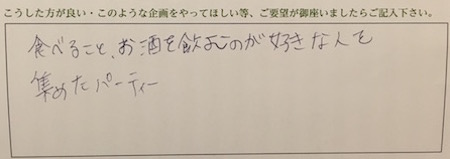 こうした方が良い・このような企画をやってほしい等、ご要望が御座いましたらご記入下さい。
食べること、お酒を飲むのが好きな人を
集めたパーティー